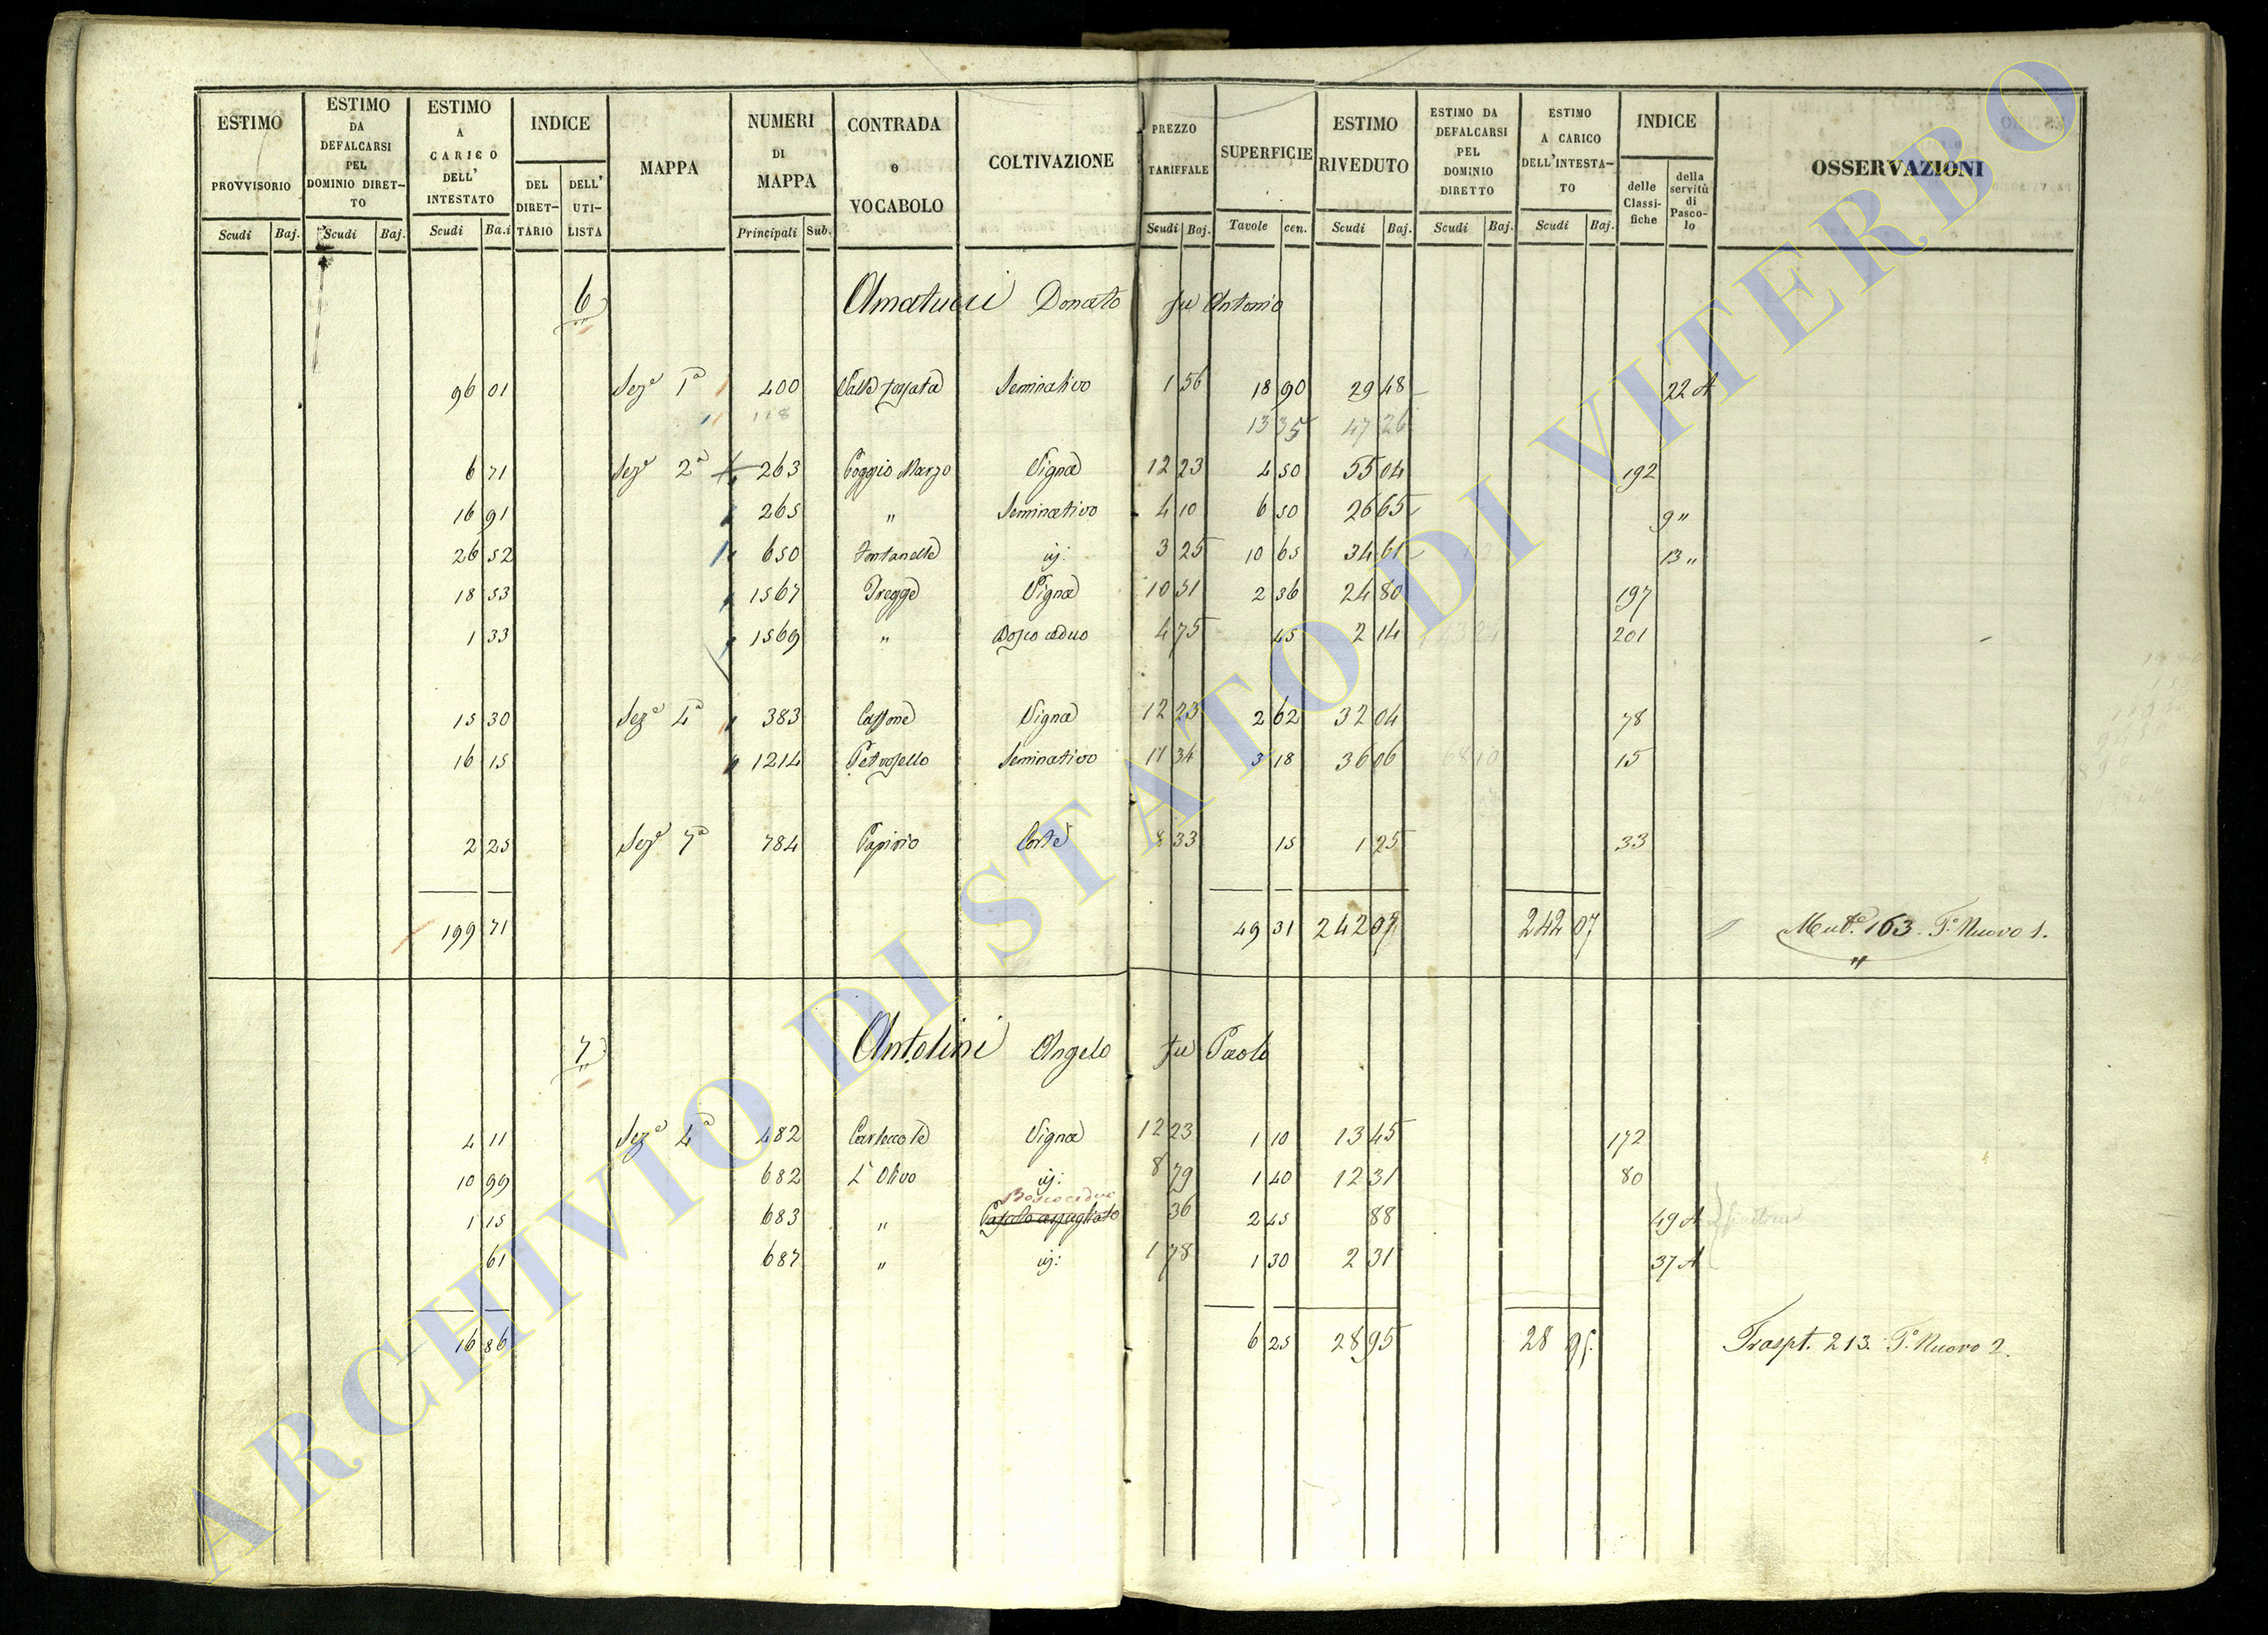 ESTIMO PROVVISORIO Scudi Baj.
ESTIMO DA DEFALCARSI PEL DOMINIO DIRETTO Scudi Baj.
ESTIMO A CARICO DELL' INTESTATO Scudi Ba.i
INDICE DEL DIRETTARIO DELL' UTILISTA
MAPPA
NUMERI DI MAPPA Principali Sub.
CONTRADA o VOCABOLO
COLTIVAZIONE
PREZZO TARIFFALE Scudi Baj.
SUPERFICIE Tavole cen.
ESTIMO RIVEDUTO Scudi Baj.
ESTIMO DA DEFALCARSI PEL DOMINIO DIRETTO Scudi Baj.
ESTIMO A CARICO DELL'INTESTATO Scudi Baj.
INDICE delle Classifiche della servitù di Pascolo
OSSERVAZIONI
6 Amatucci Donato fu Antonio
96 01 Seze 1a 400 Seminativo 1 56 18 90 29 48 22 A
118 13 35 47 26
6 71 Seze 2a 263 Poggio Marzo Vigna 12 23 4 50 55 04 192
16 91 265 " Seminativo 4 10 6 50 26 65 9 "
26 52 650 Fontanelle 3 25 10 65 34 61 13 "
18 53 1567 Vigna 10 51 2 36 24 80 197
1 33 1569 " Bosco ceduo 4 75 45 2 14 201
15 30 Seze 4a 383 Cassone Vigna 12 23 2 62 32 04 78
16 15 1214 Petrosello Seminativo 11 34 3 18 36 06 15
2 25 Seze 7a 784 Papirio Corte 8 33 15 1 25 33
199 71 49 31 242 07 242 07 Mut.e 163. F.o Nuovo 1.
"
7 Antolini Angelo fu Paolo
4 11 Seze 4a 482 Vigna 12 23 1 10 13 45 172
10 99 682 L'Olivo 8 79 1 40 12 31 80
Bosco ceduo
1 15 683 " 36 2 45 88 49 A
61 687 " 1 78 1 30 2 31 37 A
16 86 6 25 28 95 28 95 Traspt. 213. F.o Nuovo 2.
ARCHIVIO DI STATO DI VITERBO